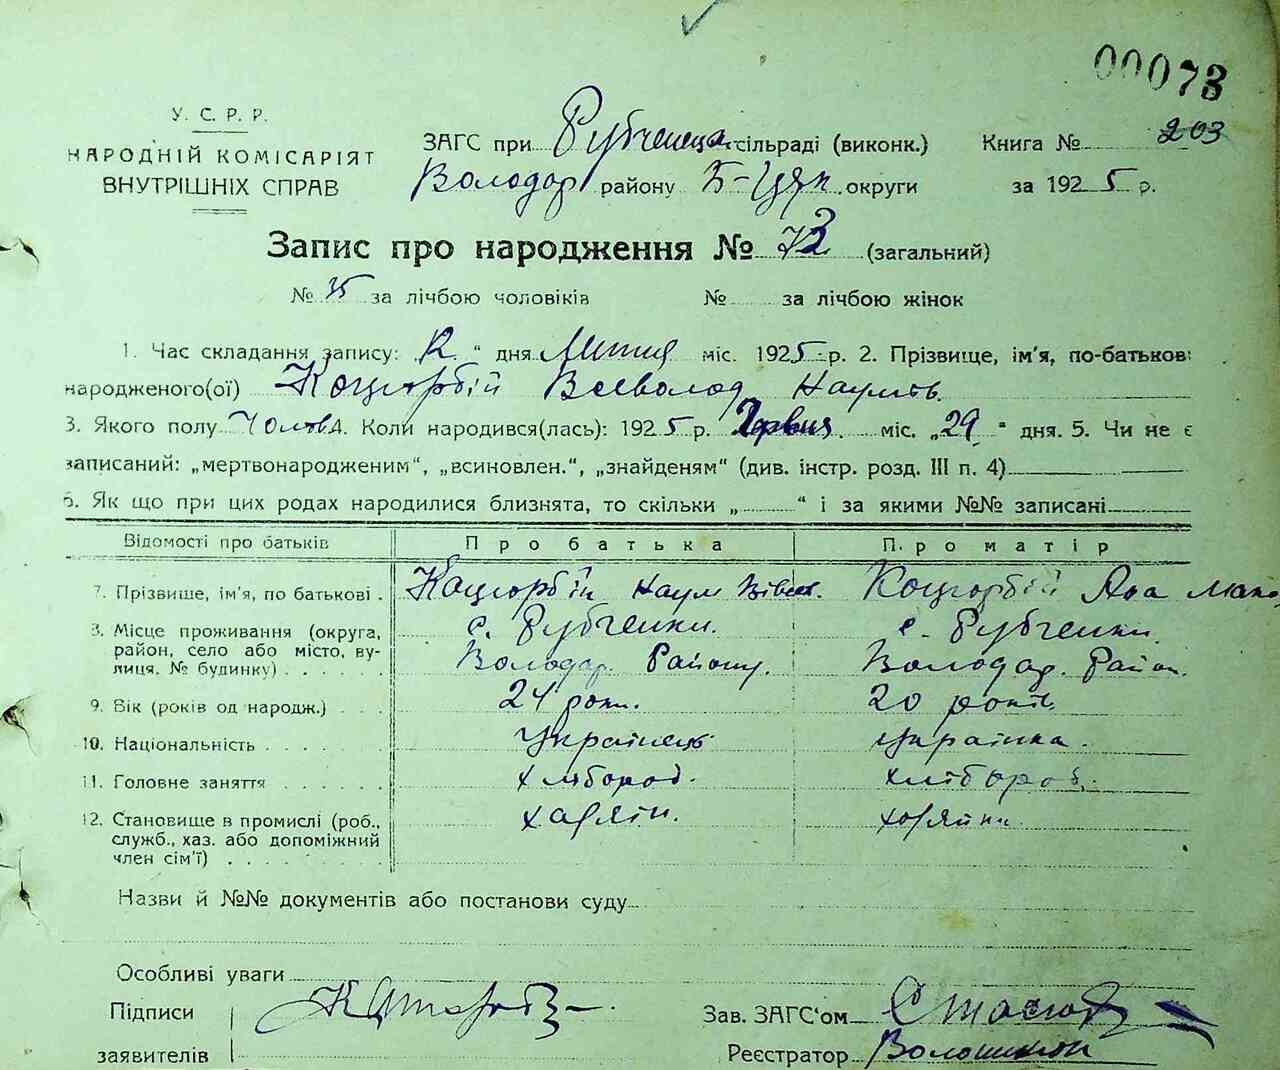 00073
У. С. Р. Р.
НАРОДНІЙ КОМІСАРІЯТ
ВНУТРІШНІХ СПРАВ
ЗАГС при Рубченецк. сільраді (виконк.) Книга № 203
Володар району Б-Церк. округи за 1925 р.
Запис про народження № 73 (загальний)
№ 35 за лічбою чоловіків № за лічбою жінок
1. Час складання запису: „12“ дня Липня міс. 1925 р. 2. Прізвище, ім'я, по-батьков:
народженого(ої) Коцюрбій Всеволод Наумів.
3. Якого полу Чолов. 4. Коли народився(лась): 1925 р. Червня міс. „29“ дня. 5. Чи не є
записаний: „мертвонародженим“, „всиновлен.“, „знайденям“ (див. інстр. розд. III п. 4)
6. Як що при цих родах народилися близнята, то скільки „ “ і за якими №№ записані
Відомості про батьків Про батька Про матір
7. Прізвише, ім'я, по батькові . Коцюрбій Наум Коцюрбій
8. Місце проживання (округа, с. Рубченки. с. Рубченки.
район, село або місто, ву- Володар. Району. Володар. Район.
лиця. № будинку) . . . . . .
9. Вік (років од народж.) . . . 24 роки. 20 років.
10. Національність . . . . . Українець Українка.
11. Головне заняття . . . . . . хлібороб. хлібороб.
12. Становище в промислі (роб., хазяїн. хазяйка
служб., хаз. або допоміжний
член сім'ї) . . . . . . .
Назви й №№ документів або постанови суду
Особливі уваги
Підписи Зав. ЗАГС'ом
заявителів Реєстратор